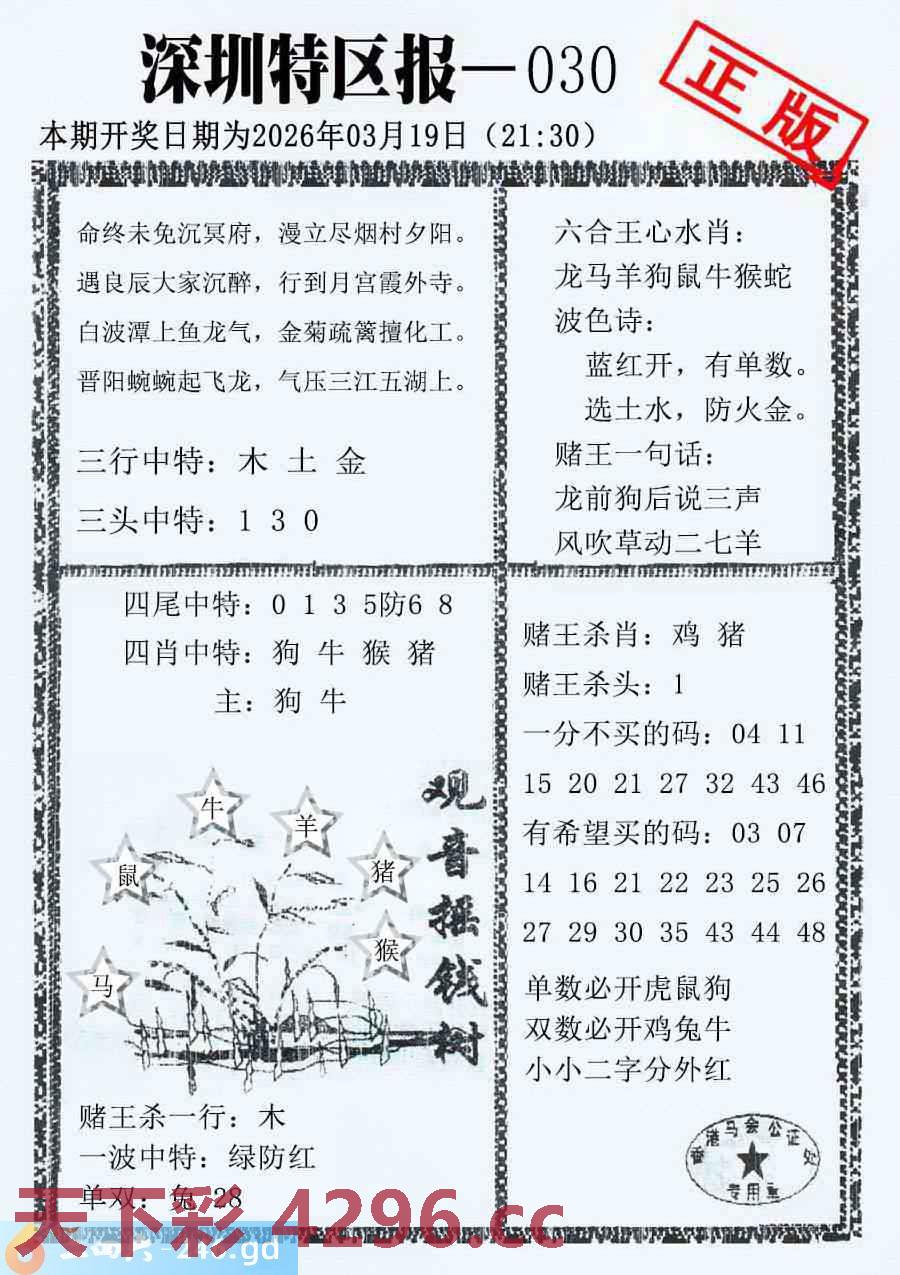 深圳特区报—030
正版
本期开奖日期为2026年03月19日（21:30）
命终未免沉冥府，漫立尽烟村夕阳。
遇良辰大家沉醉，行到月宫霞外寺。
白波潭上鱼龙气，金菊疏篱擅化工。
晋阳蜿蜿起飞龙，气压三江五湖上。
三行中特：木 土 金
三头中特：1 3 0
六合王心水肖：
龙马羊狗鼠牛猴蛇
波色诗：
蓝红开，有单数。
选土水，防火金。
赌王一句话：
龙前狗后说三声
风吹草动二七羊
四尾中特：0 1 3 5防6 8
四肖中特：狗 牛 猴 猪
主：狗 牛
牛
羊
鼠
猪
猴
马
观音摇钱树
赌王杀一行：木
一波中特：绿防红
单双：兔 28
赌王杀肖：鸡 猪
赌王杀头：1
一分不买的码：04 11
15 20 21 27 32 43 46
有希望买的码：03 07
14 16 21 22 23 25 26
27 29 30 35 43 44 48
单数必开虎鼠狗
双数必开鸡兔牛
小小二字分外红
香港马会公证处
专用章
天下彩 4296.cc